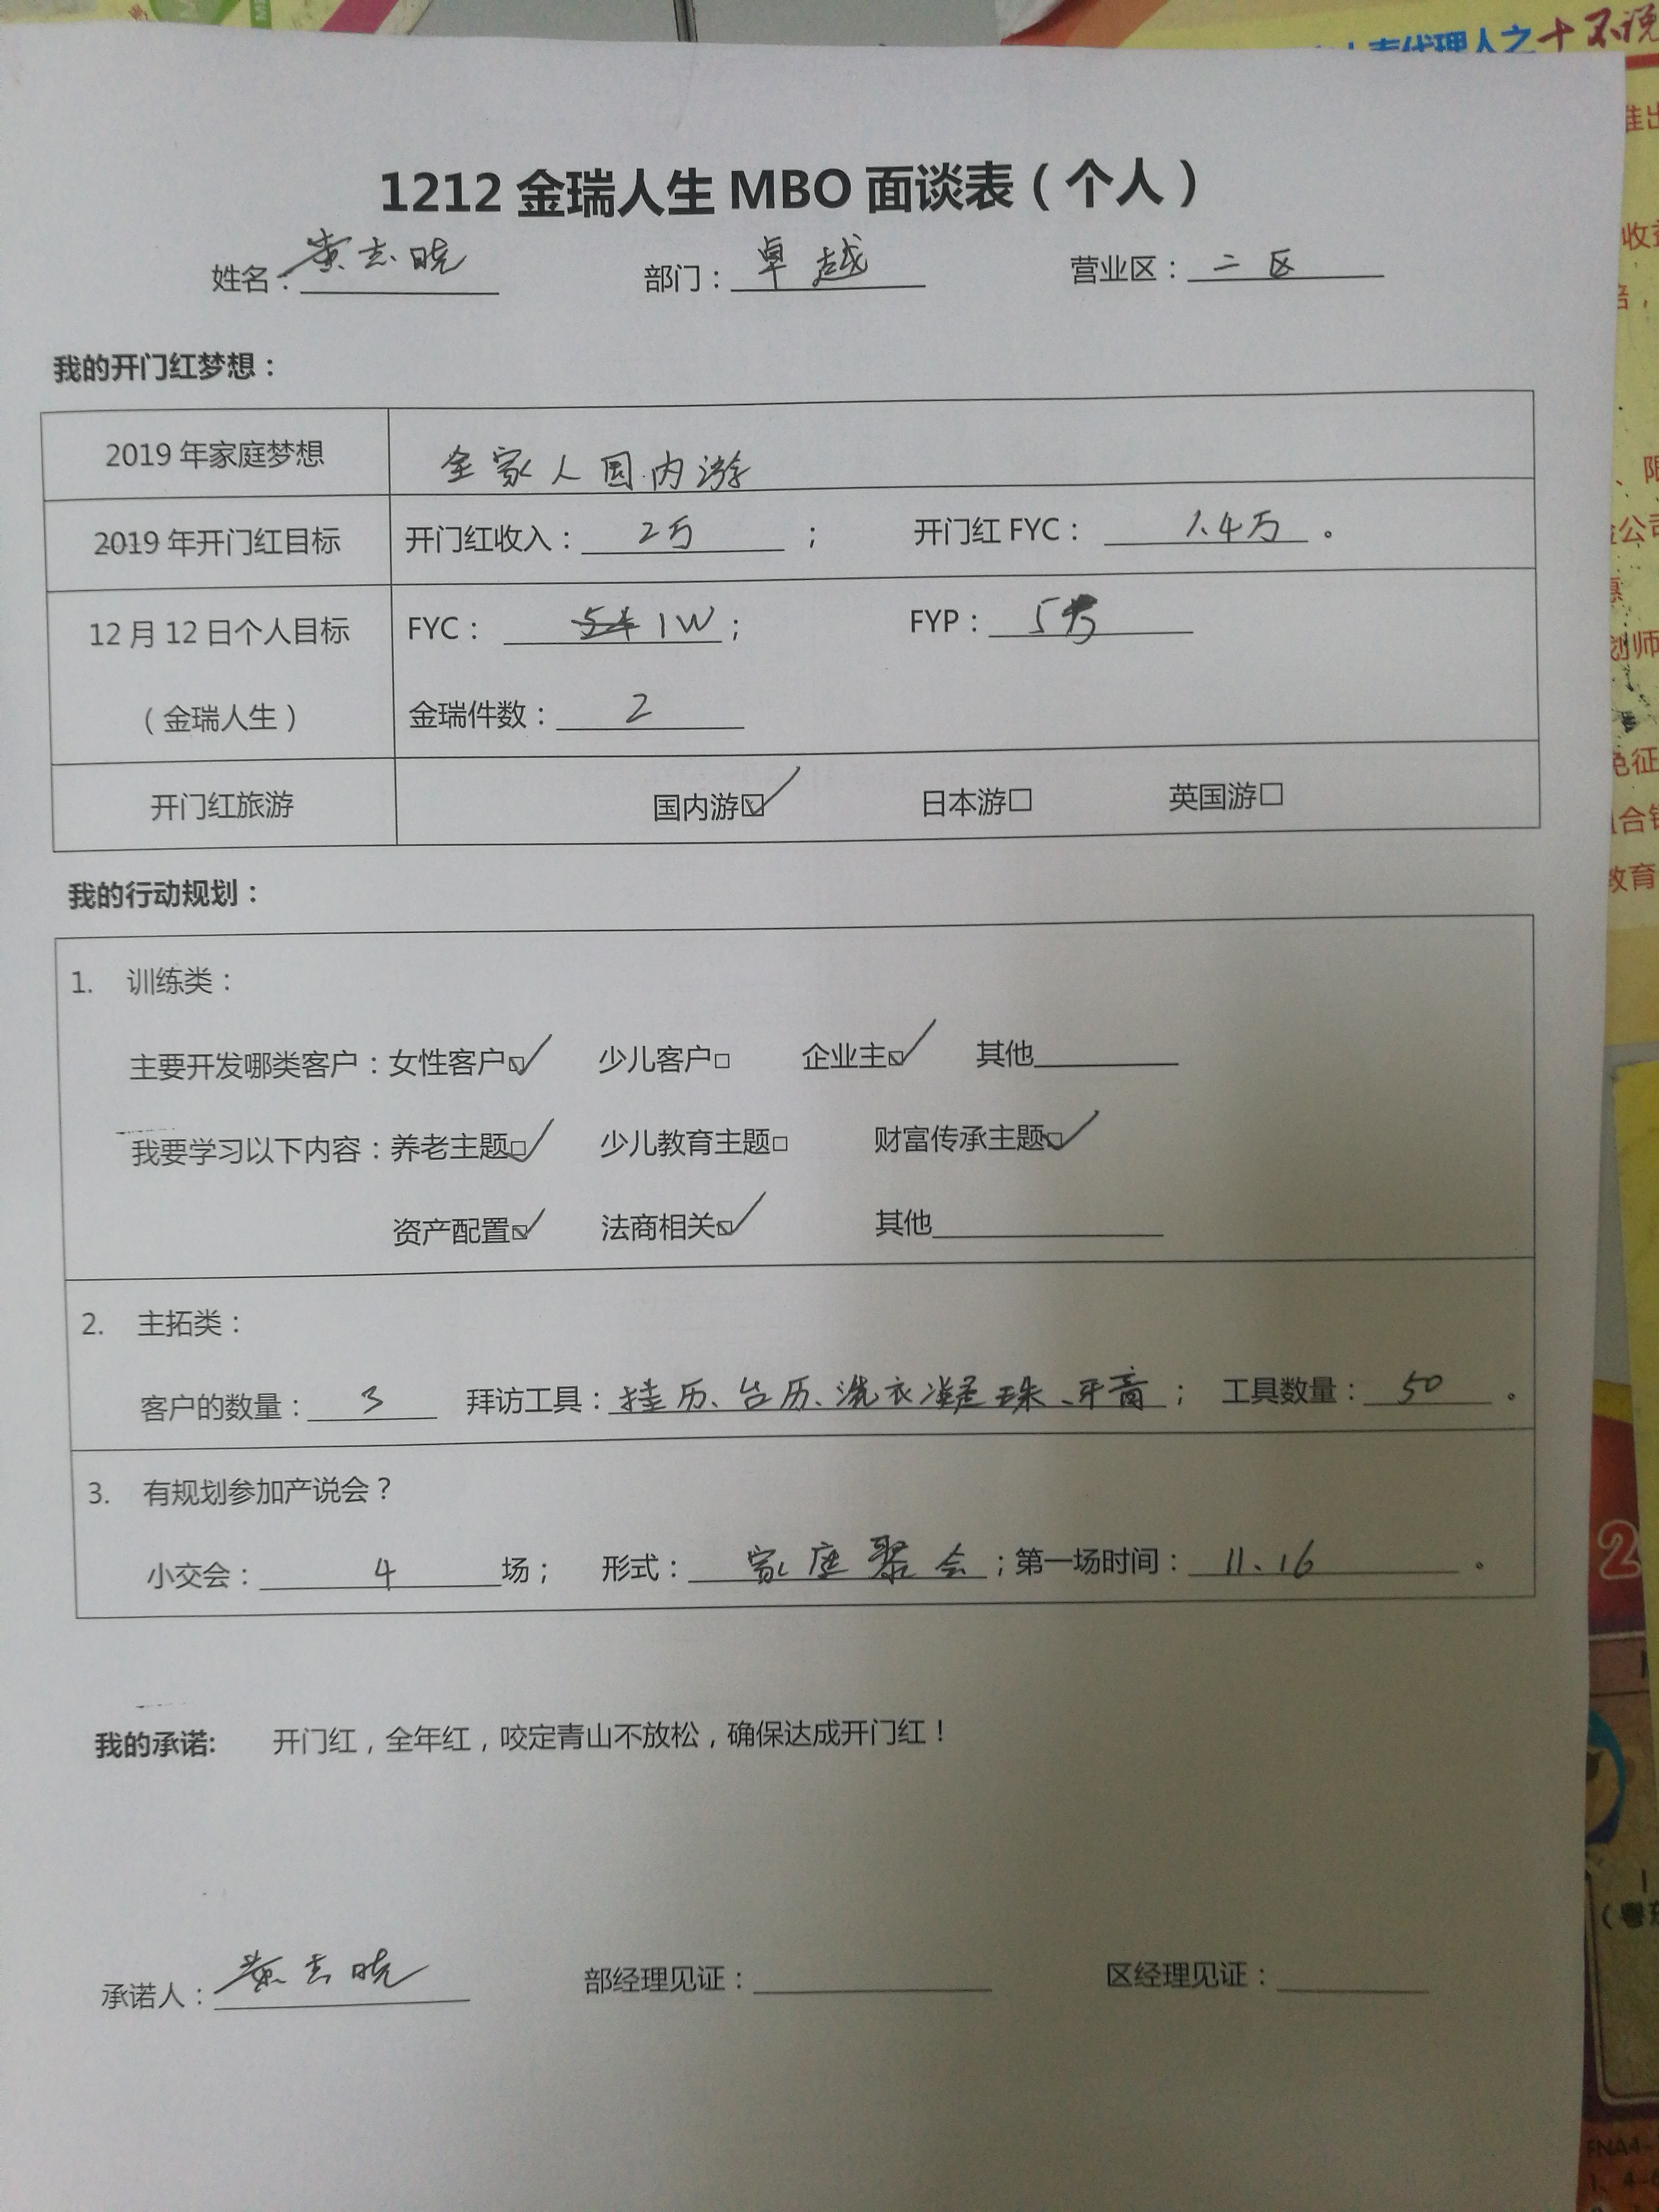 1212 金瑞人生 MBO 面谈表（个人）
姓名：黄志晓 部门：卓越 营业区：二区
我的开门红梦想：
2019 年家庭梦想 全家人国内游
2019 年开门红目标 开门红收入：2万； 开门红 FYC：1.4万。
12 月 12 日个人目标 FYC：1W； FYP：5万
（金瑞人生） 金瑞件数：2
开门红旅游 国内游☑ 日本游□ 英国游□
我的行动规划：
1. 训练类：
主要开发哪类客户：女性客户☑ 少儿客户□ 企业主☑ 其他
我要学习以下内容：养老主题☑ 少儿教育主题□ 财富传承主题☑
资产配置☑ 法商相关☑ 其他
2. 主拓类：
客户的数量：3 拜访工具：挂历、台历、洗衣凝珠、牙膏； 工具数量：50。
3. 有规划参加产说会？
小交会：4场； 形式：家庭聚会；第一场时间：11.16。
我的承诺: 开门红，全年红，咬定青山不放松，确保达成开门红！
承诺人：黄志晓 部经理见证： 区经理见证：
代理人之十不说
收益
公司
划师
免征
教育
2
FNA4-